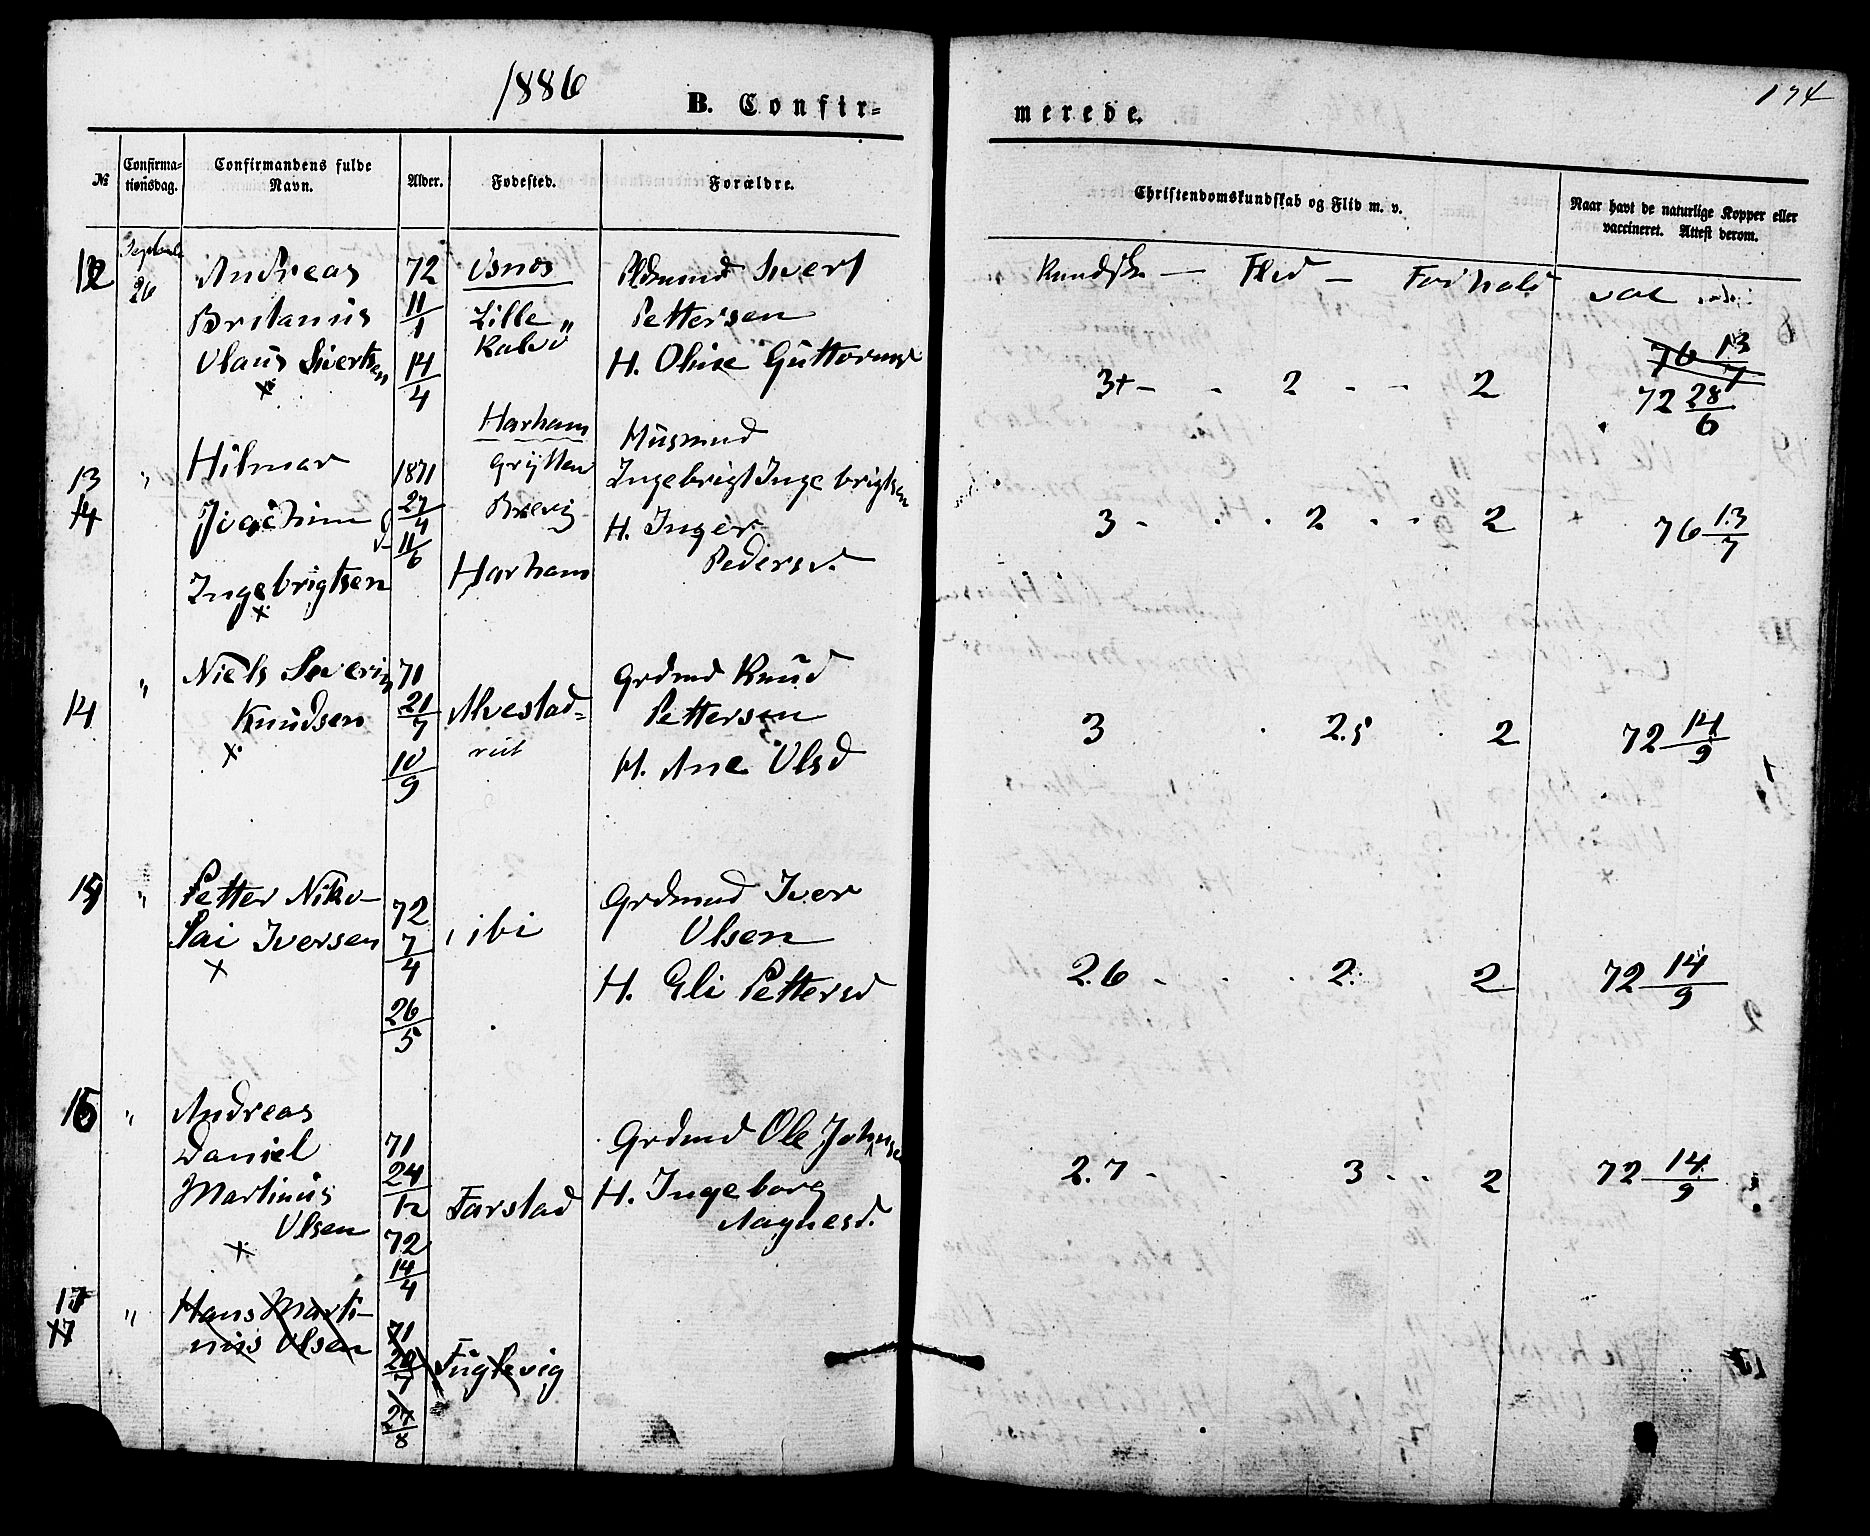 1886
B. Confir-
merede.
174
№
Confirma-
tionsdag.
Confirmandens fulde
Navn.
Alder.
Fødested.
Forældre.
Christendomskundskab og Flid m. v.
Naar havt de naturlige Kopper eller
vaccineret. Attest derom.
Kundsk. — Flid — Forhold
vac
12
26
Andreas
Britanius
Olaus Sivertsen
x
72
11/1
14/4
Lille
Kalvø
Sivert
Pettersen
H. Oline Guttormsd
3+ - - 2 - - 2
76 13/7
72 28/6
13
14
"
Hilmar
Joachim
Ingebrigtsen
x
1871
27/4
11/6
Harham
Grytten
Brevig
Harham
Husmnd
Ingebrigt Ingebrigtsen
H. Inger
Pedersd.
3 - . . 2 . . 2
76 13/7
14
"
Niels Severin
Knudsen
x
71
21/7
10/9
Alvestad-
Grdmd Knud
Pettersen
H. Ane Olsd
3 . 2.5 . 2
72 14/9
15
"
Petter Niko-
lai Iversen
x
72
7/4
26/5
ibi
Grdmnd Iver
Olsen
H. Eli Pettersd
2.6 - . . 2. 2
72 14/9
16
"
Andreas
Daniel
Martinus
Olsen
x
71
24/12
72
14/4
Farstad
Grdmd Ole Johnsen
H. Ingeborg
Aagnesd.
2.7 - . 3 . . 2
72 14/9
17
17
"
Hans Marti-
nus Olsen
71
20/7
27/8
Fuglevig